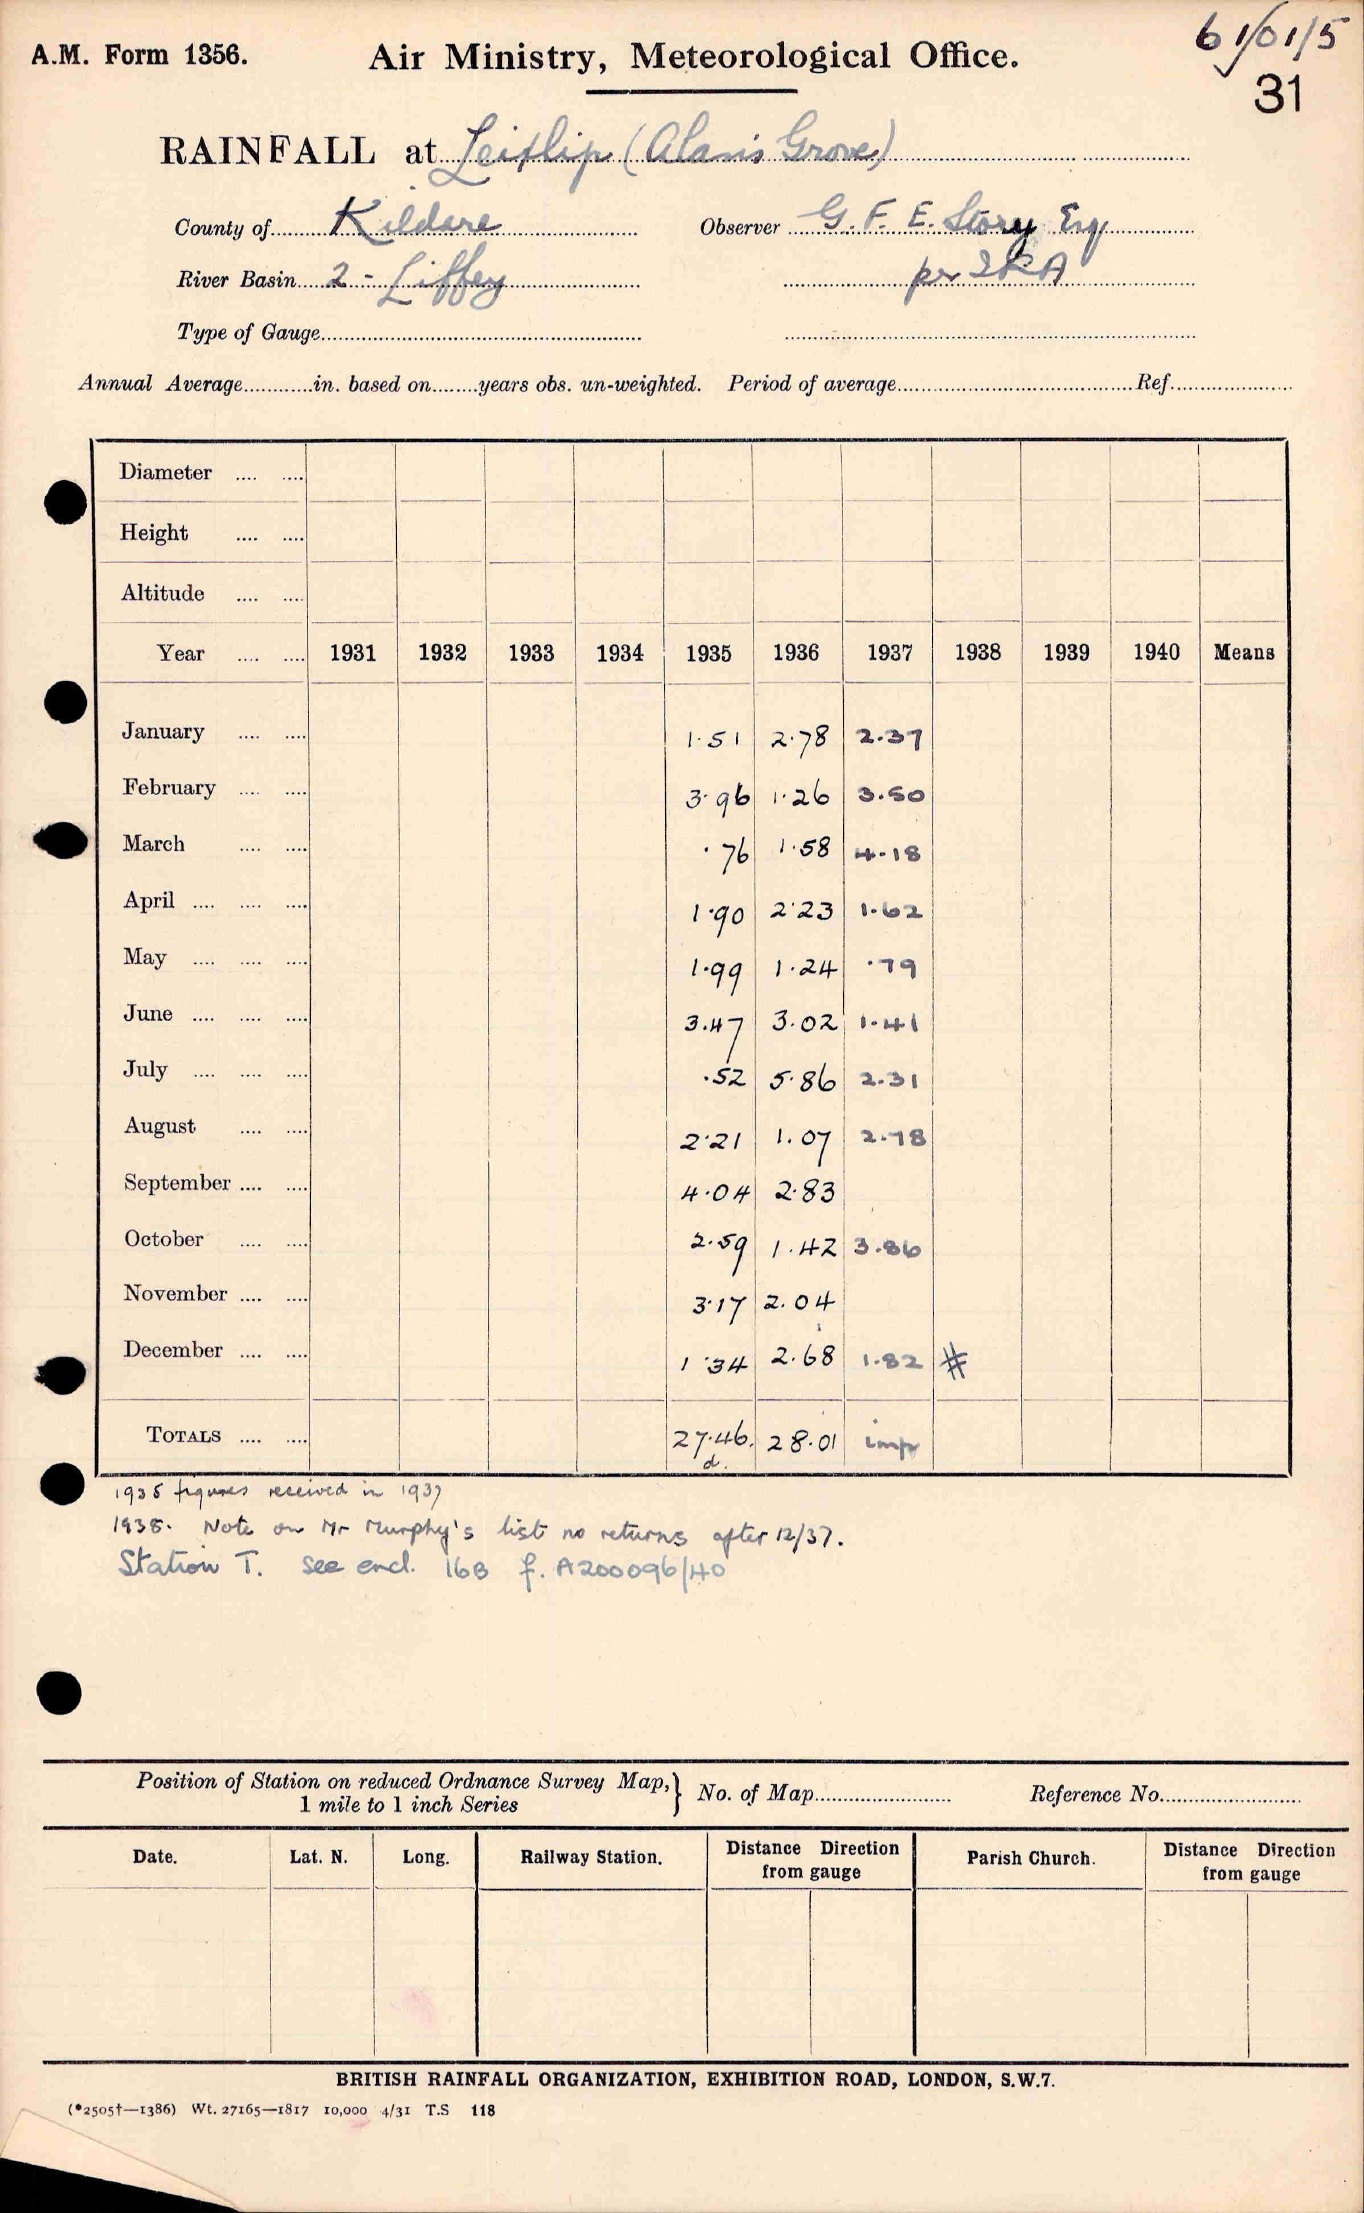 A.M. Form 1356. Air Ministry, Meteorological Office. 61/01/5
31
RAINFALL at Leixlip (Alans Grove)
County of Kildare Observer G. F. E. Story Esq
River Basin 2 - Liffey per IRA
Type of Gauge
Annual Average in. based on years obs. un-weighted. Period of average Ref.
Diameter
Height
Altitude
Year 1931 1932 1933 1934 1935 1936 1937 1938 1939 1940 Means
January 1.51 2.78 2.37
February 3.96 1.26 3.50
March .76 1.58 4.18
April 1.90 2.23 1.62
May 1.99 1.24 .79
June 3.47 3.02 1.41
July .52 5.86 2.31
August 2.21 1.07 2.78
September 4.04 2.83
October 2.59 1.42 3.86
November 3.17 2.04
December 1.34 2.68 1.82 #
TOTALS 27.46. 28.01 imp
d.
1935 figures received in 1937
1938. Note on Mr Murphy's list no returns after 12/37.
Station T. see encl. 16B f. A200096/40
Position of Station on reduced Ordnance Survey Map, } No. of Map Reference No.
1 mile to 1 inch Series
Date. Lat. N. Long. Railway Station. Distance Direction from gauge Parish Church. Distance Direction from gauge
BRITISH RAINFALL ORGANIZATION, EXHIBITION ROAD, LONDON, S.W.7.
(*2505†—1386) Wt. 27165—1817 10,000 4/31 T.S 118